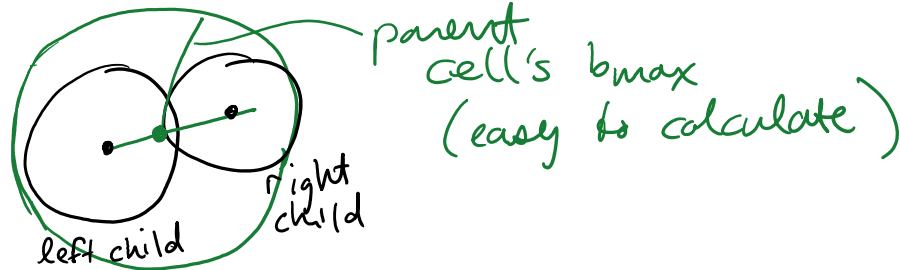 parent
cell's bmax
(easy to calculate)
right
child
left child